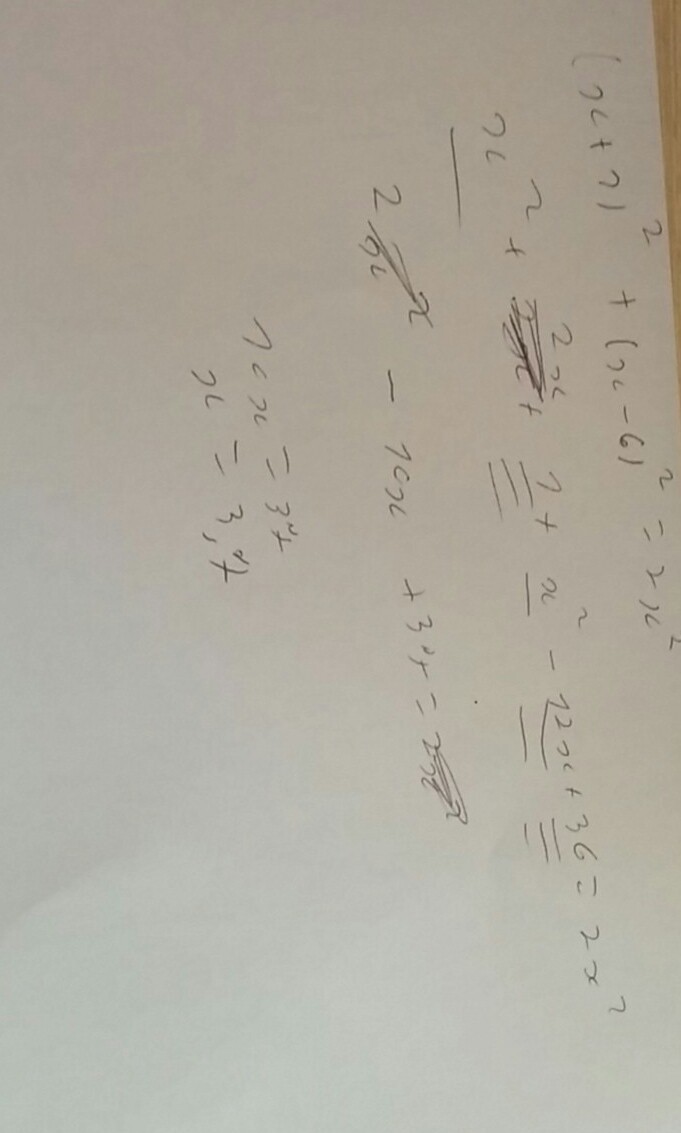 (x+1)² + (x-6)² = 2x²
x² + 2x + 1 + x² - 12x + 36 = 2x²
2x² - 10x + 37 = 2x²
10x = 37
x = 3,7